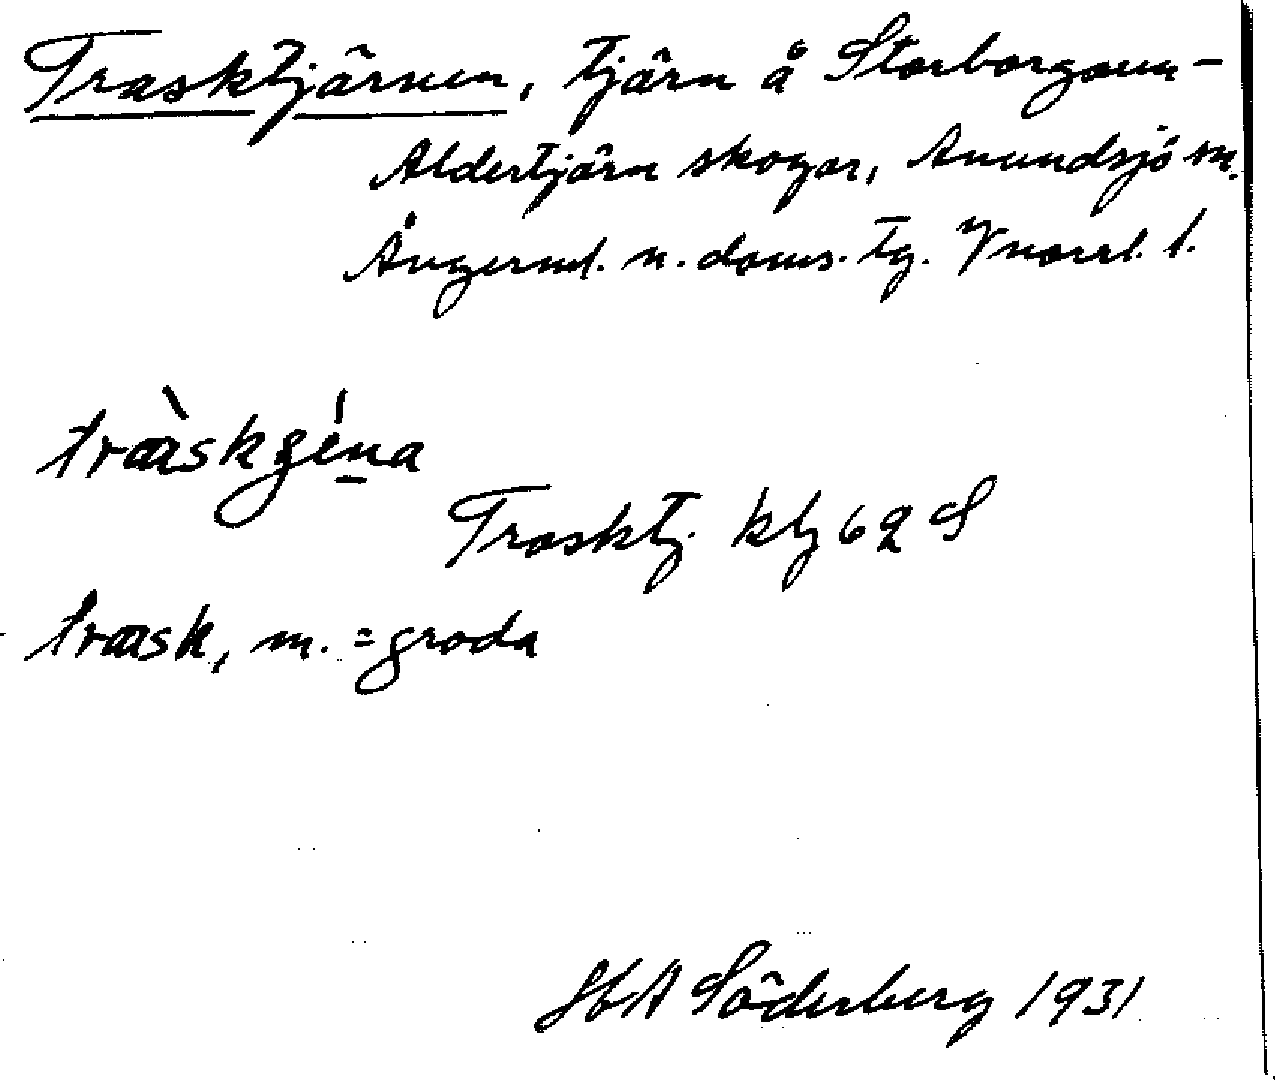 Trasktjärnen, tjärn å Storborgaren-
Aldertjärn skogar, Anundsjö sn.
Ångerml. n. doms. tg. Vnorrl. l.
tra͞skge̱na
Trasktj. kbl 62 S
trask, m. = groda
HA Söderberg 1931